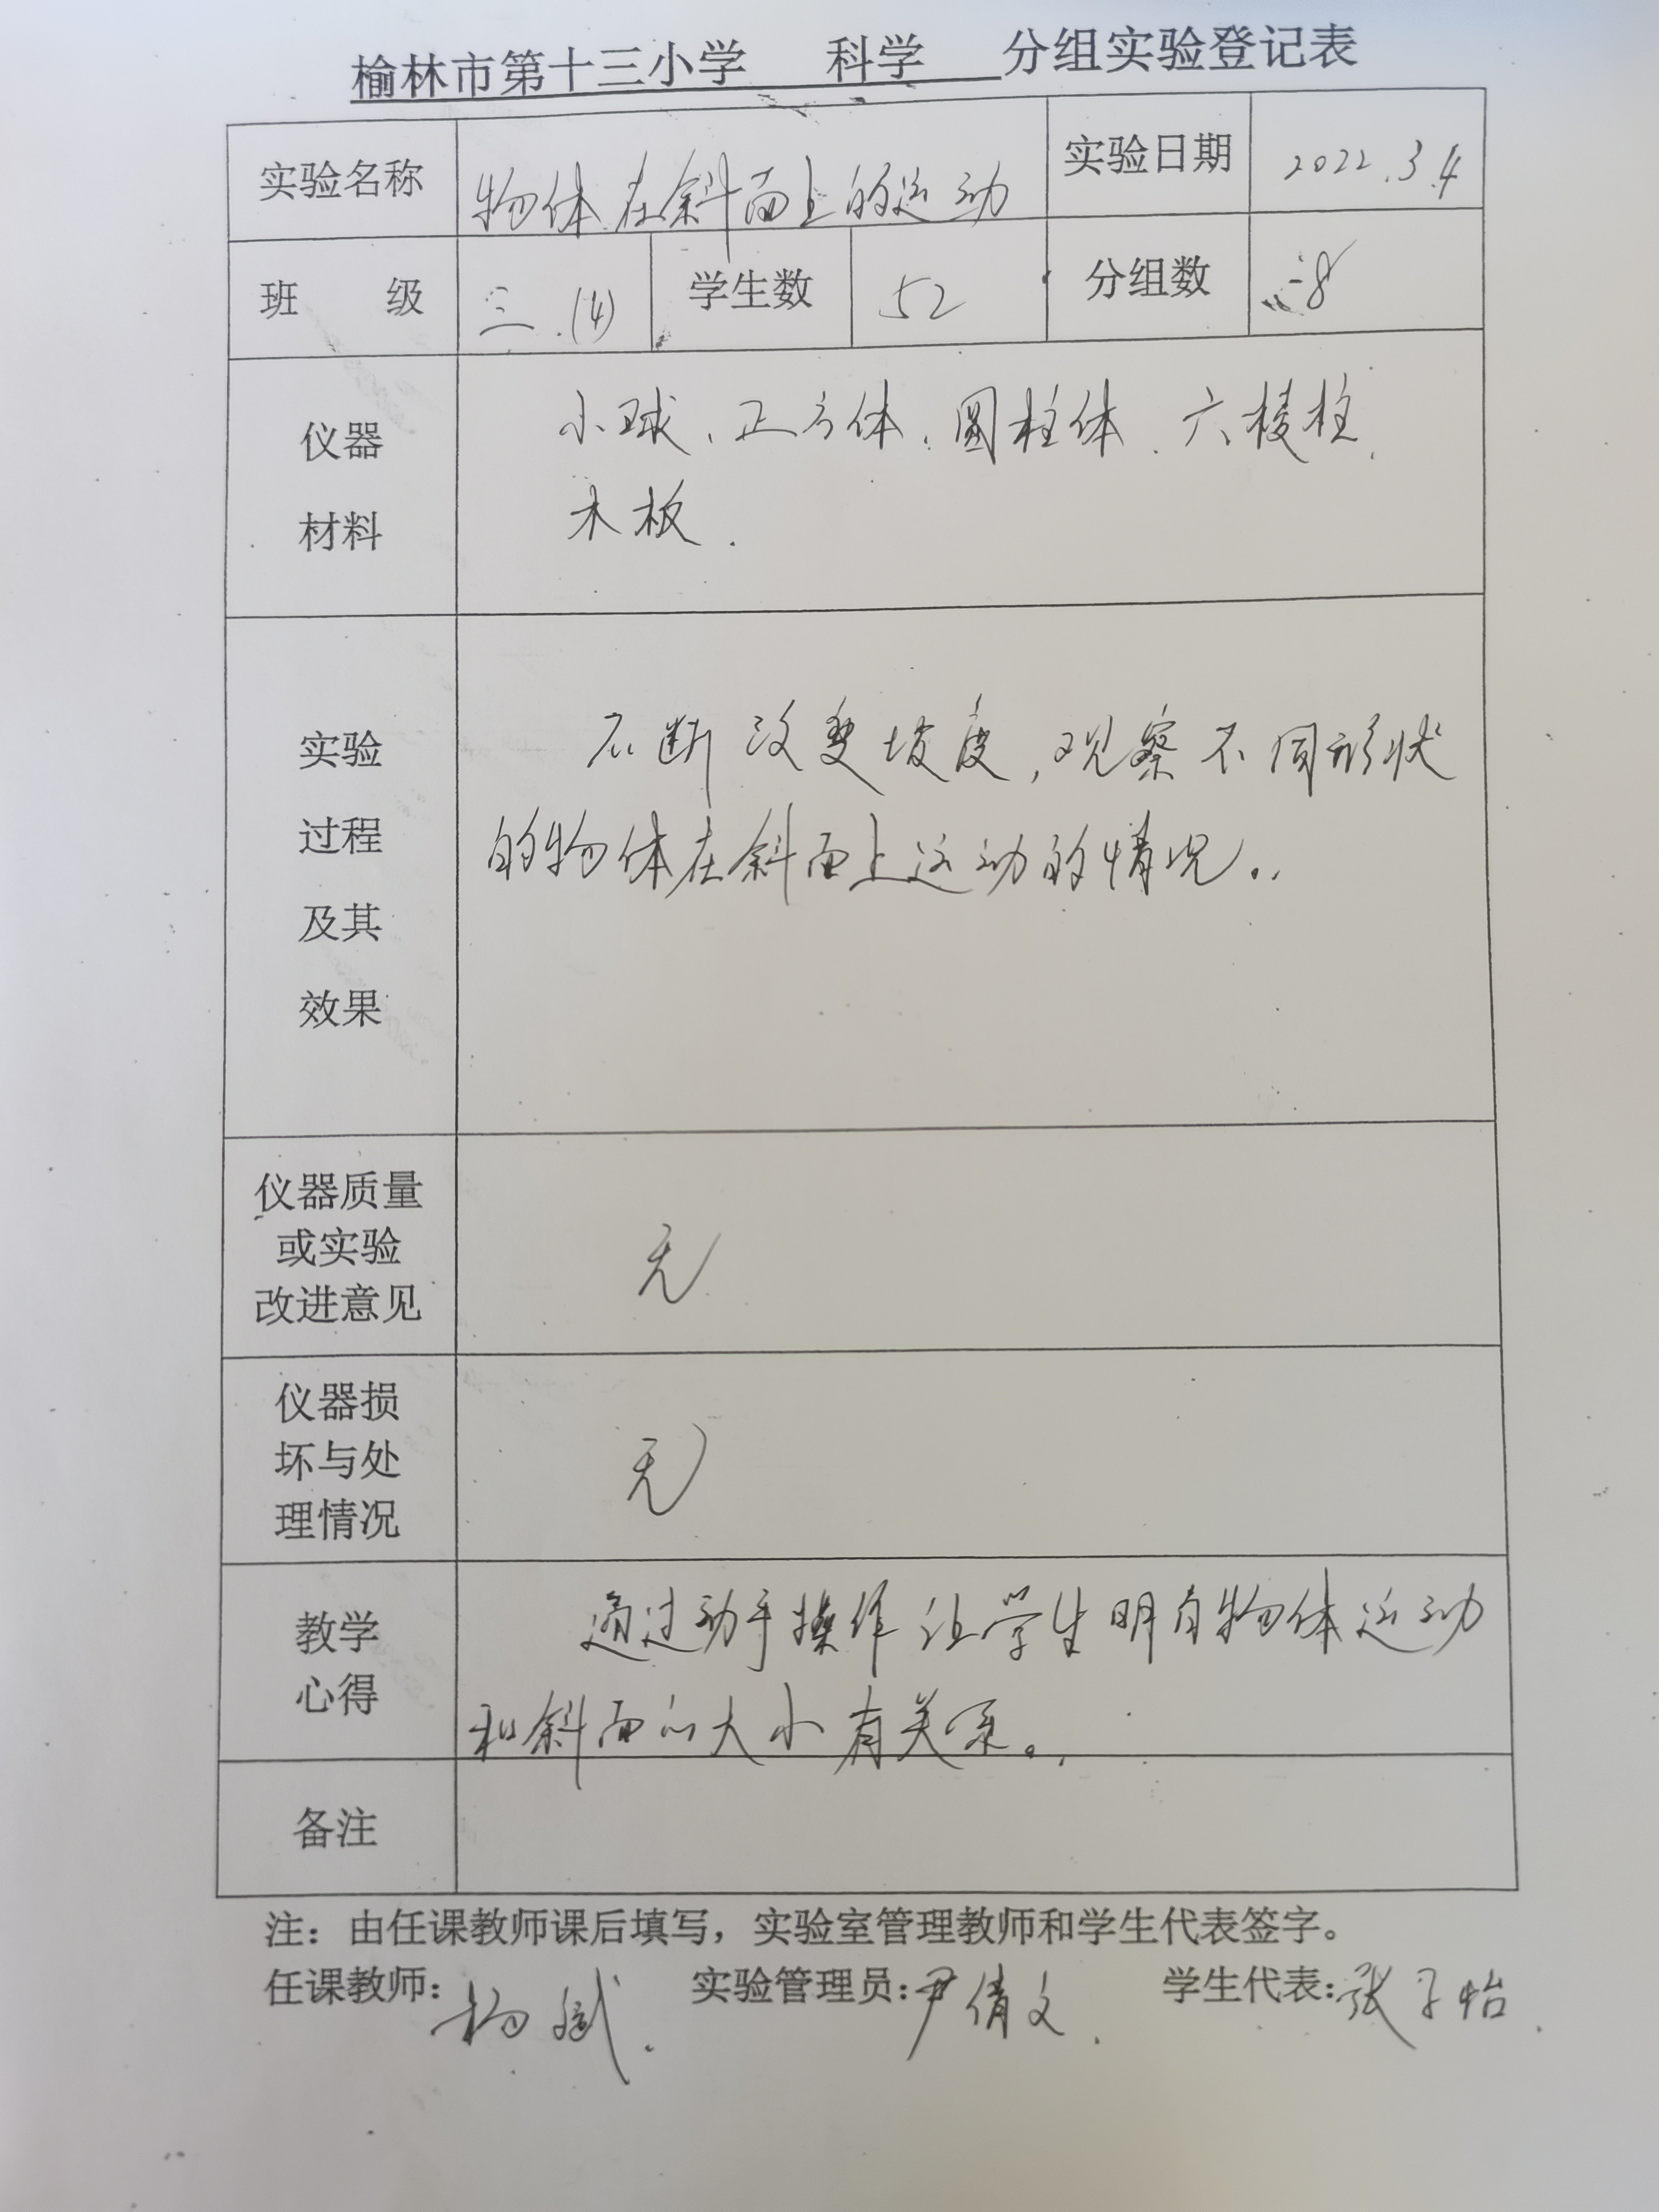 榆林市第十三小学 科学 分组实验登记表
实验名称 物体在斜面上的运动 实验日期 2022.3.4
班 级 三.(4) 学生数 52 分组数 8
仪器 小球、正方体、圆柱体、六棱柱、
材料 木板.
实验 不断改变坡度,观察不同形状
过程 的物体在斜面上运动的情况。
及其
效果
仪器质量
或实验 无
改进意见
仪器损
坏与处 无
理情况
教学 通过动手操作让学生明白物体运动
心得 和斜面的大小有关系。
备注
注：由任课教师课后填写，实验室管理教师和学生代表签字。
任课教师：杨斌. 实验管理员：尹倩文. 学生代表：张子怡.